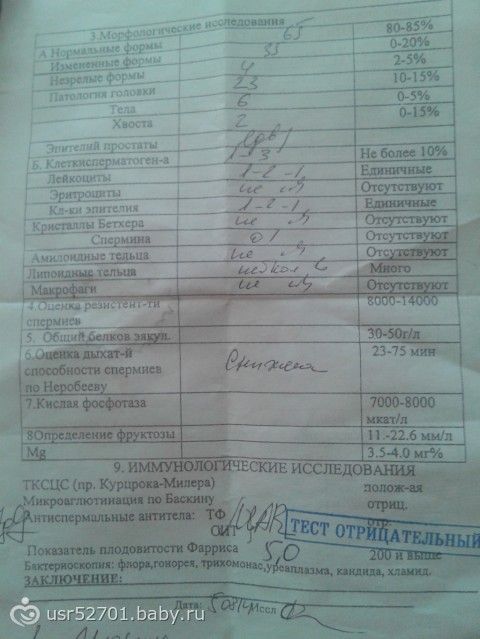 3.Морфологические исследования
А Нормальные формы 65 80-85%
Измененные формы 35 0-20%
Незрелые формы 4 2-5%
Патология головки 23 10-15%
Тела 6 0-5%
Хвоста 2 0-15%
Эпителий простаты
Б. Клеткисперматоген-а 1-3 Не более 10%
Лейкоциты 1-2-1 Единичные
Эритроциты не Отсутствуют
Кл-ки эпителия 1-2-1 Единичные
Кристаллы Бетхера не Отсутствуют
Спермина Отсутствуют
Амилоидные тельца не Отсутствуют
Липоидные тельца Много
Макрофаги не Отсутствуют
4.Оценка резистент-ти спермиев 8000-14000
5. Общий белков эякул. 30-50г/л
6.Оценка дыхат-й 23-75 мин
способности спермиев Снижена
по Неробееву
7.Кислая фосфотаза 7000-8000
мкат/л
8Определение фруктозы 11.-22.6 мм/л
Mg 3.5-4.0 мг%
9. ИММУНОЛОГИЧЕСКИЕ ИССЛЕДОВАНИЯ
ТКСЦС (пр. Курцрока-Милера) полож-ая
Микроаглютинация по Баскину отриц.
Антиспермальные антитела: ТФ MAR отр.
ТЕСТ ОТРИЦАТЕЛЬНЫЙ
Показатель плодовитости Фарриса 5,0 200 и выше
Бактериоскопия: флора,гонорея, трихомонас,уреаплазма, кандида, хламид.
ЗАКЛЮЧЕНИЕ:
Дата:
usr52701.baby.ru